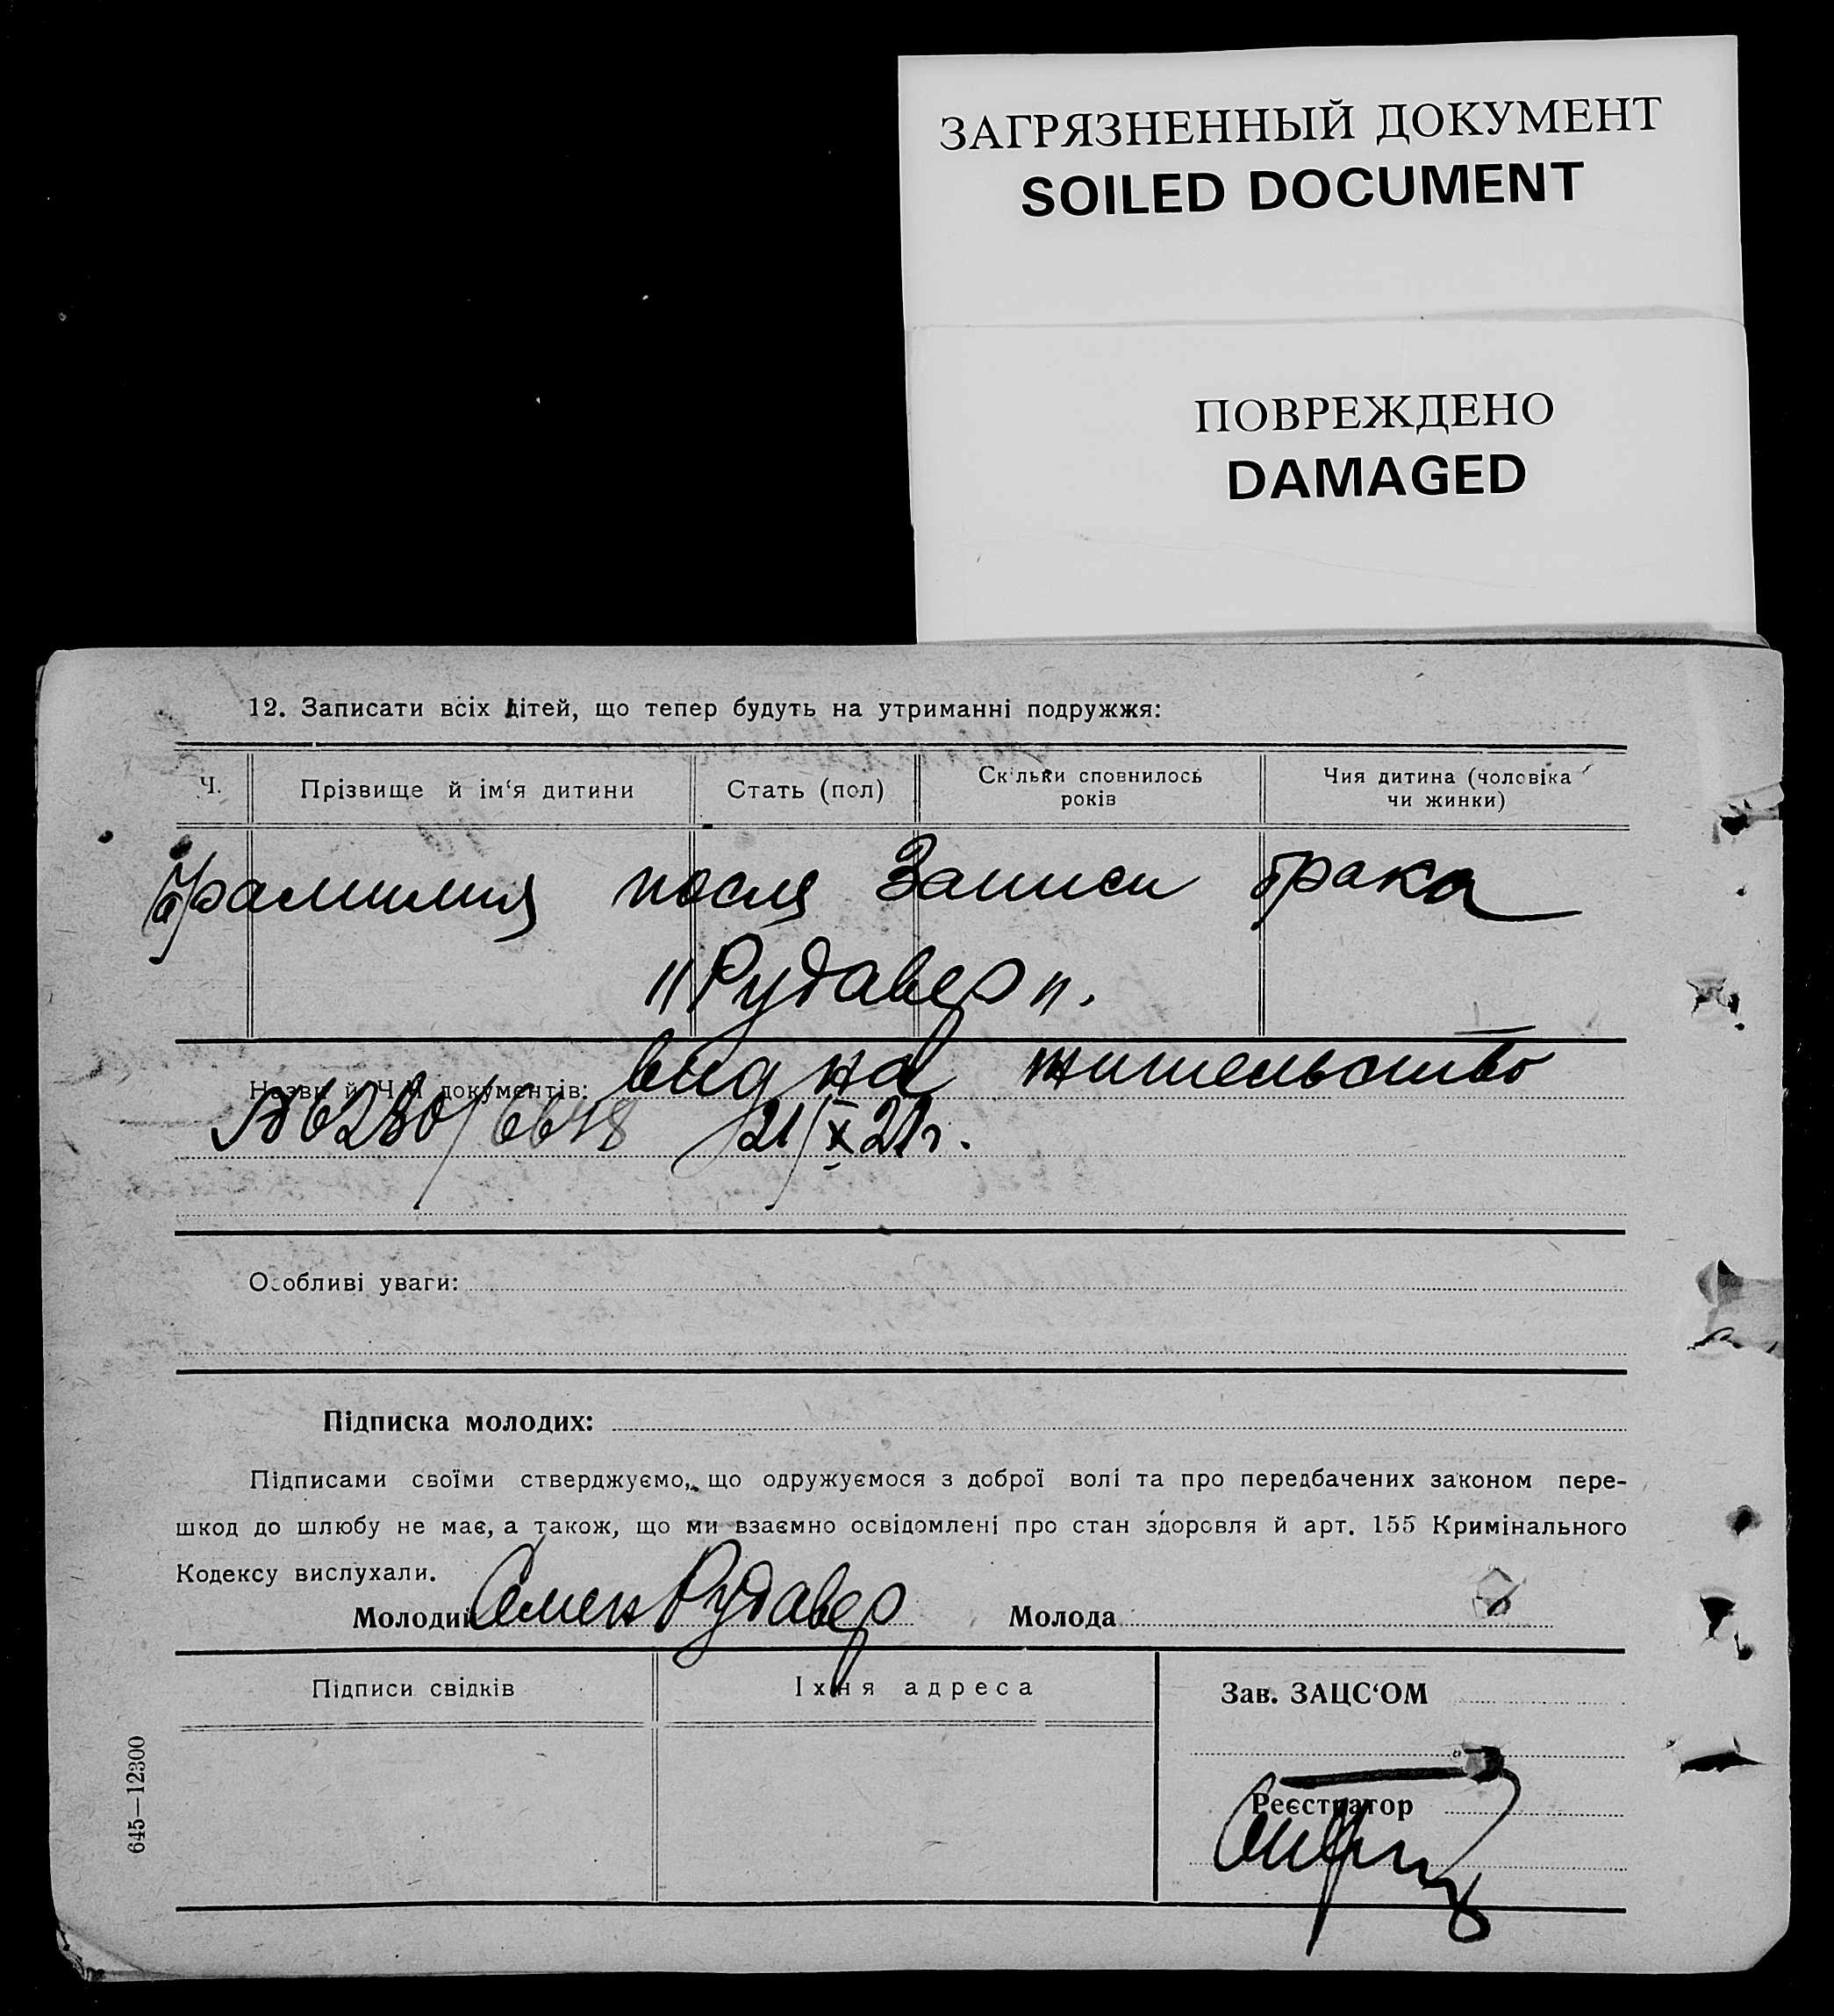 ЗАГРЯЗНЕННЫЙ ДОКУМЕНТ
SOILED DOCUMENT
ПОВРЕЖДЕНО
DAMAGED
12. Записати всіх дітей, що тепер будуть на утриманні подружжя:
Ч. Прізвище й ім‘я дитини Стать (пол) Скільки сповнилось років Чия дитина (чоловіка чи жинки)
Фамилия после Записи брака
"Рудавер".
Назви й Ч.Ч документів: вид на жительство
21/X 21г.
Особливі уваги:
Підписка молодих:
Підписами своїми стверджуємо, що одружуємося з доброї волі та про передбачених законом пере-
шкод до шлюбу не має, а також, що ми взаємно освідомлені про стан здоровля й арт. 155 Кримінального
Кодексу вислухали.
Молодий Семен Рудавер Молода
Підписи свідків Їхня адреса Зав. ЗАЦС‘ОМ
Реєстратор
645—12300